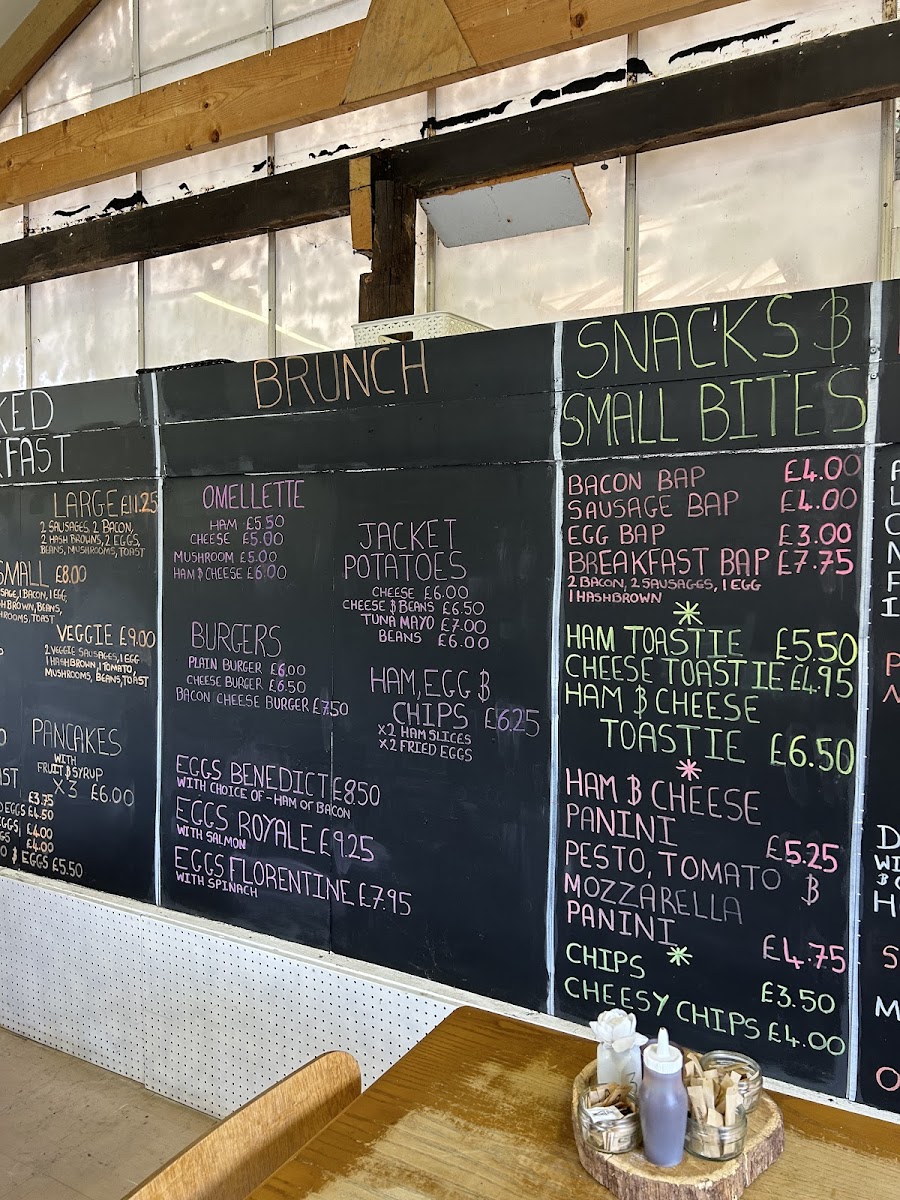 KED
FAST
LARGE £11.25
2 SAUSAGES, 2 BACON,
2 HASH BROWNS, 2 EGGS,
BEANS, MUSHROOMS, TOAST
SMALL £8.00
SAGE, 1 BACON, 1 EGG,
SH BROWN, BEANS,
HROOMS, TOAST
VEGGIE £9.00
2 VEGGIE SAUSAGES, 1 EGG
1 HASHBROWN, 1 TOMATO,
MUSHROOMS, BEANS, TOAST
PANCAKES
WITH
FRUIT & SYRUP
X3 £6.00
AST
£3.75
EGGS £4.50
EGGS, £4.00
GS £4.00
& EGGS £5.50
BRUNCH
OMELLETTE
HAM £5.50
CHEESE £5.00
MUSHROOM £5.00
HAM & CHEESE £6.00
BURGERS
PLAIN BURGER £6.00
CHEESE BURGER £6.50
BACON CHEESE BURGER £7.50
EGGS BENEDICT £8.50
WITH CHOICE OF - HAM OF BACON
EGGS ROYALE £9.25
WITH SALMON
EGGS FLORENTINE £7.95
WITH SPINACH
JACKET
POTATOES
CHEESE £6.00
CHEESE & BEANS £6.50
TUNA MAYO £7.00
BEANS £6.00
HAM, EGG &
CHIPS £6.25
X2 HAM SLICES
X2 FRIED EGGS
SNACKS &
SMALL BITES
BACON BAP £4.00
SAUSAGE BAP £4.00
EGG BAP £3.00
BREAKFAST BAP £7.75
2 BACON, 2 SAUSAGES, 1 EGG
1 HASHBROWN
HAM TOASTIE £5.50
CHEESE TOASTIE £4.95
HAM & CHEESE
TOASTIE £6.50
HAM & CHEESE
PANINI £5.25
PESTO, TOMATO &
MOZZARELLA
PANINI £4.75
CHIPS £3.50
CHEESY CHIPS £4.00